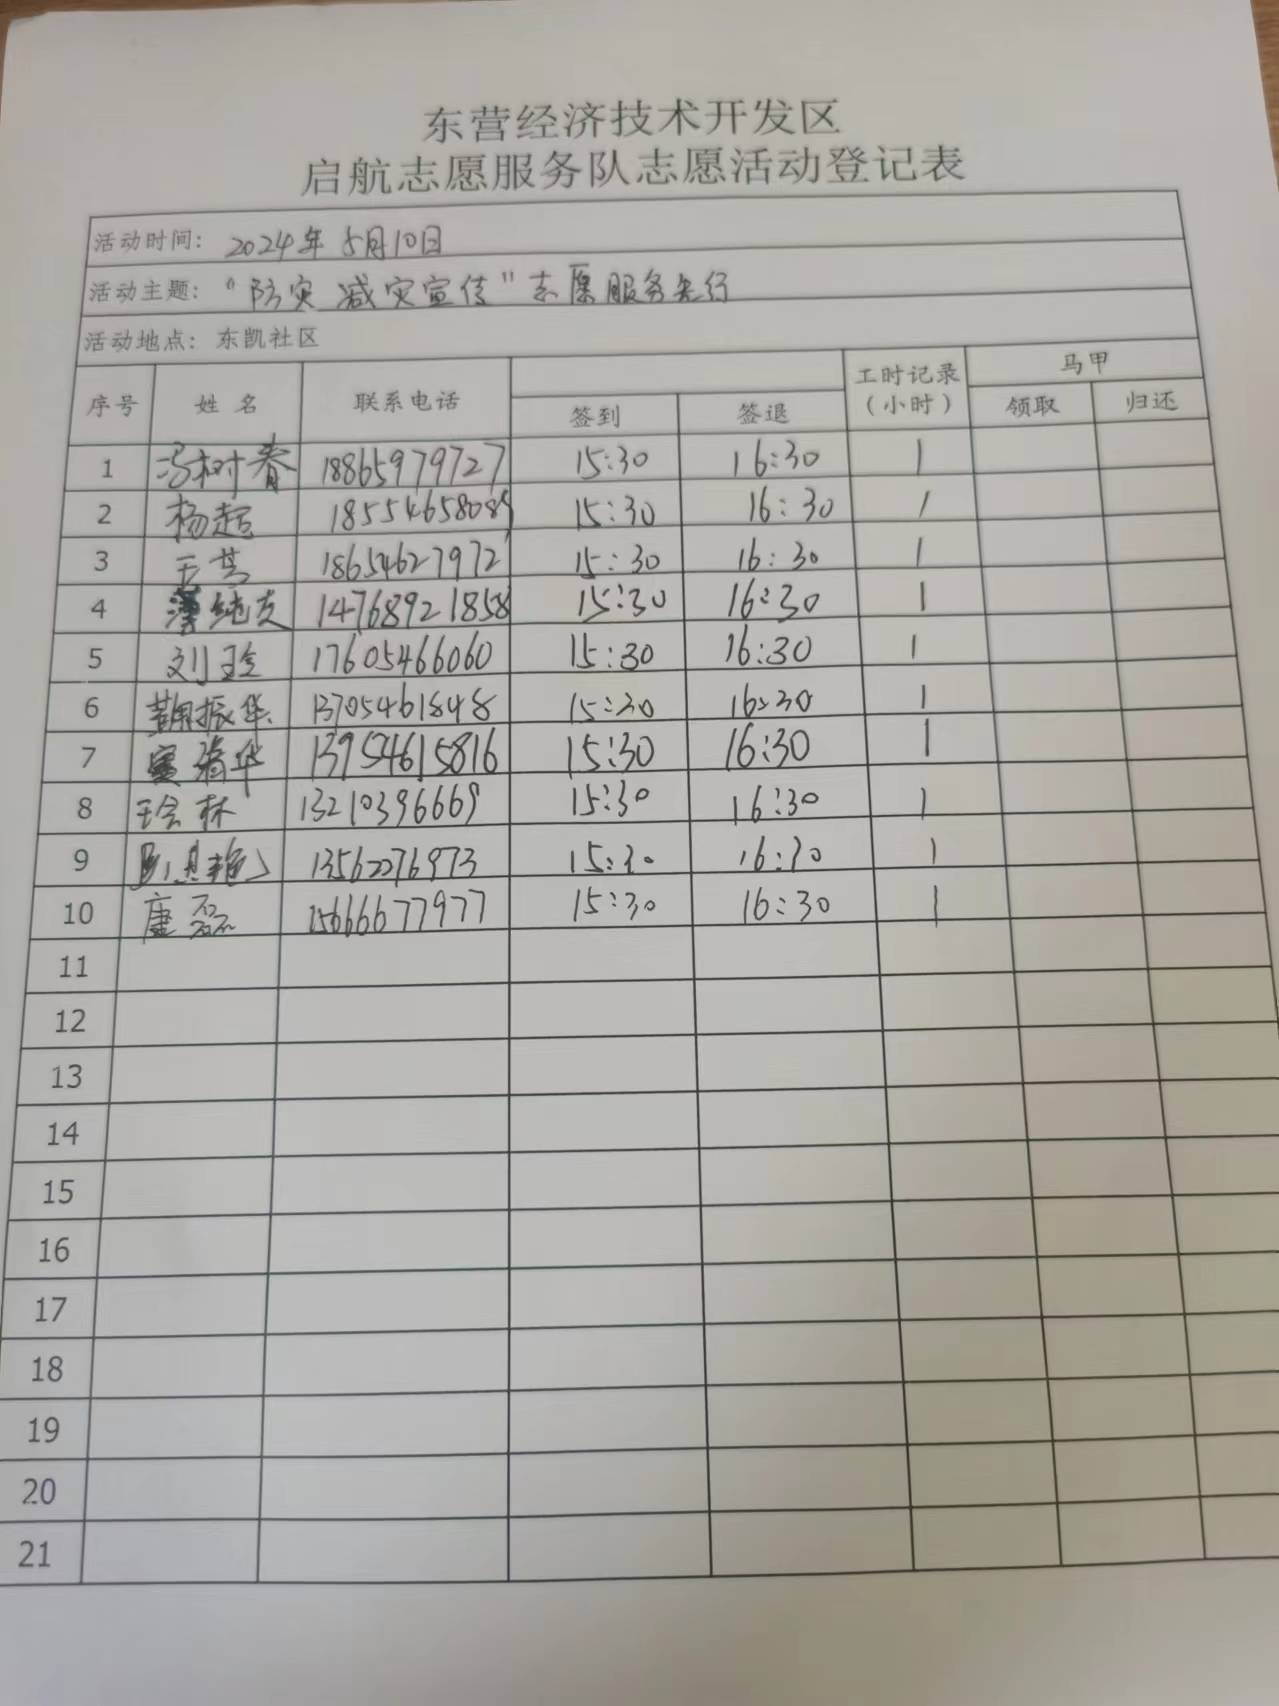 东营经济技术开发区
启航志愿服务队志愿活动登记表
活动时间：2024年5月10日
活动主题："防灾减灾宣传"志愿服务先行
活动地点：东凯社区
序号 姓名 联系电话 签到 签退 工时记录（小时） 马甲 领取 归还
1 冯树春 18865979727 15:30 16:30 1
2 杨超 1855465808 15:30 16:30 1
3 王 18654627972 15:30 16:30 1
4 纯 14768921858 15:30 16:30 1
5 刘玲 17605466060 15:30 16:30 1
6 振华 13705461848 15:30 16:30 1
7 华 13954615816 15:30 16:30 1
8 林 13210396669 15:30 16:30 1
9 13562276973 15:30 16:30 1
10 唐磊 15666677977 15:30 16:30 1
11
12
13
14
15
16
17
18
19
20
21